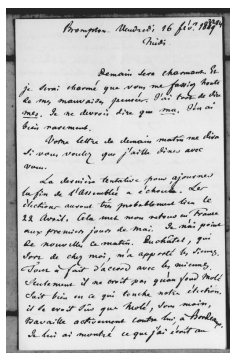 Brompton. Vendredi 16 fév. 1849
Midi
Demain sera charmant. Et
je serai charmé que vous me fassiez honte
de mes mauvaises pensées. J'ai tort de dire
mes. Je ne devrois dire que ma. J'en ai
bien rarement.
Votre lettre de demain matin me dira
si vous voulez que j'aille diner avec
vous.
La dernière tentative pour ajourner
la fin de l'Assemblée a échoué. Les
élections auront très probablement lieu le
22 avril. Cela met mon retour en France
aux premiers jours de mai. Je n'ai point
de nouvelles ce matin. Duchâtel, qui
sort de chez moi, m'a apporté les siennes.
Tout à fait d'accord avec les miennes.
Seulement il ne croit pas qu'au fond Molé
soit bien en ce qui touche notre élection.
il le croit d'un que Molé, sous main,
travaille activement contre lui à Bordeaux.
Je lui ai montré ce que j'écrit au